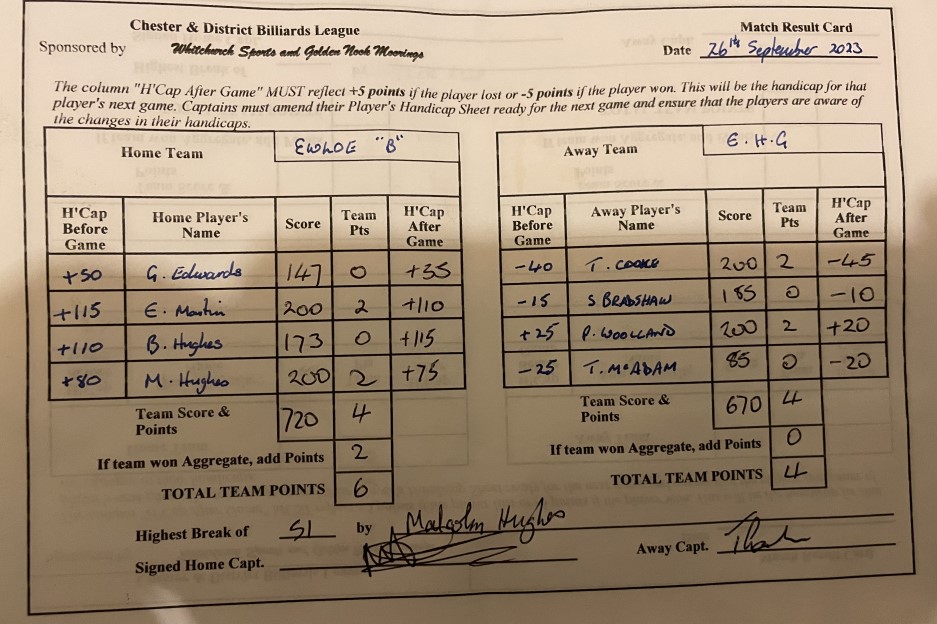 Chester & District Billiards League
Match Result Card
Sponsored by Whitchurch Sports and Golden Nook Moorings
Date 26th September 2023
The column "H'Cap After Game" MUST reflect +5 points if the player lost or -5 points if the player won. This will be the handicap for that
player's next game. Captains must amend their Player's Handicap Sheet ready for the next game and ensure that the players are aware of
the changes in their handicaps.
Home Team EWLOE "B"
Away Team E.H.G
H'Cap Before Game Home Player's Name Score Team Pts H'Cap After Game
+50 G. Edwards 147 0 +35
+115 E. Martin 200 2 +110
+110 B. Hughes 173 0 +115
+80 M. Hughes 200 2 +75
Team Score & Points 720 4
If team won Aggregate, add Points 2
TOTAL TEAM POINTS 6
H'Cap Before Game Away Player's Name Score Team Pts H'Cap After Game
-40 T. COOKE 200 2 -45
-15 S BRADSHAW 185 0 -10
+25 P. WOOLLAND 200 2 +20
-25 T. McADAM 85 0 -20
Team Score & Points 670 4
If team won Aggregate, add Points 0
TOTAL TEAM POINTS 4
Highest Break of 51 by Malcolm Hughes
Signed Home Capt.
Away Capt.